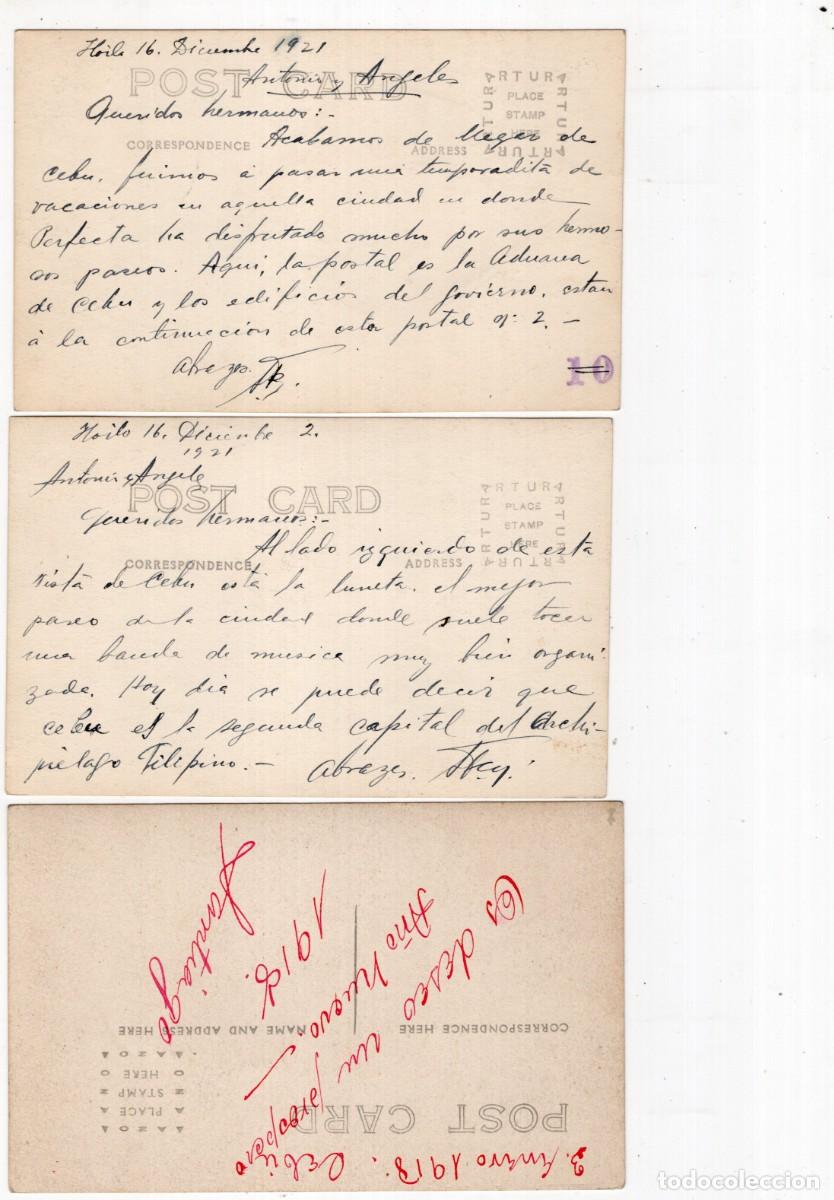 Iloilo 16. Diciembre 1921
POST CARD
Antonio y Angeles
ARTURA
PLACE
STAMP
HERE
Queridos hermanos:-
CORRESPONDENCE
ADDRESS
Acabamos de llegar de
Cebu. fuimos á pasar una temporadita de
vacaciones en aquella ciudad en donde
Perfecta ha disfrutado mucho por sus hermo-
sos paseos. Aqui, la postal es la Aduana
de Cebu y los edificios del Govierno. estan
á la continuacion de esta postal nº 2. -
Abrazos.
10
Iloilo 16. Diciembre 2.
1921
Antonio y Angeles
POST CARD
ARTURA
PLACE
STAMP
HERE
Queridos hermanos:-
CORRESPONDENCE
ADDRESS
Al lado izquierdo de esta
vista de Cebu está la luneta. el mejor
paseo de la ciudad donde suele tocar
una banda de musica muy bien organi-
zada. Hoy dia se puede decir que
Cebu es la segunda capital del Archi-
piélago Filipino. -
Abrazos.
3. Enero 1918. Cebú
Os deseo un prospero
Año Nuevo. -
1918.
Santiago
POST CARD
CORRESPONDENCE HERE
NAME AND ADDRESS HERE
AZO
PLACE
STAMP
HERE
todocoleccion